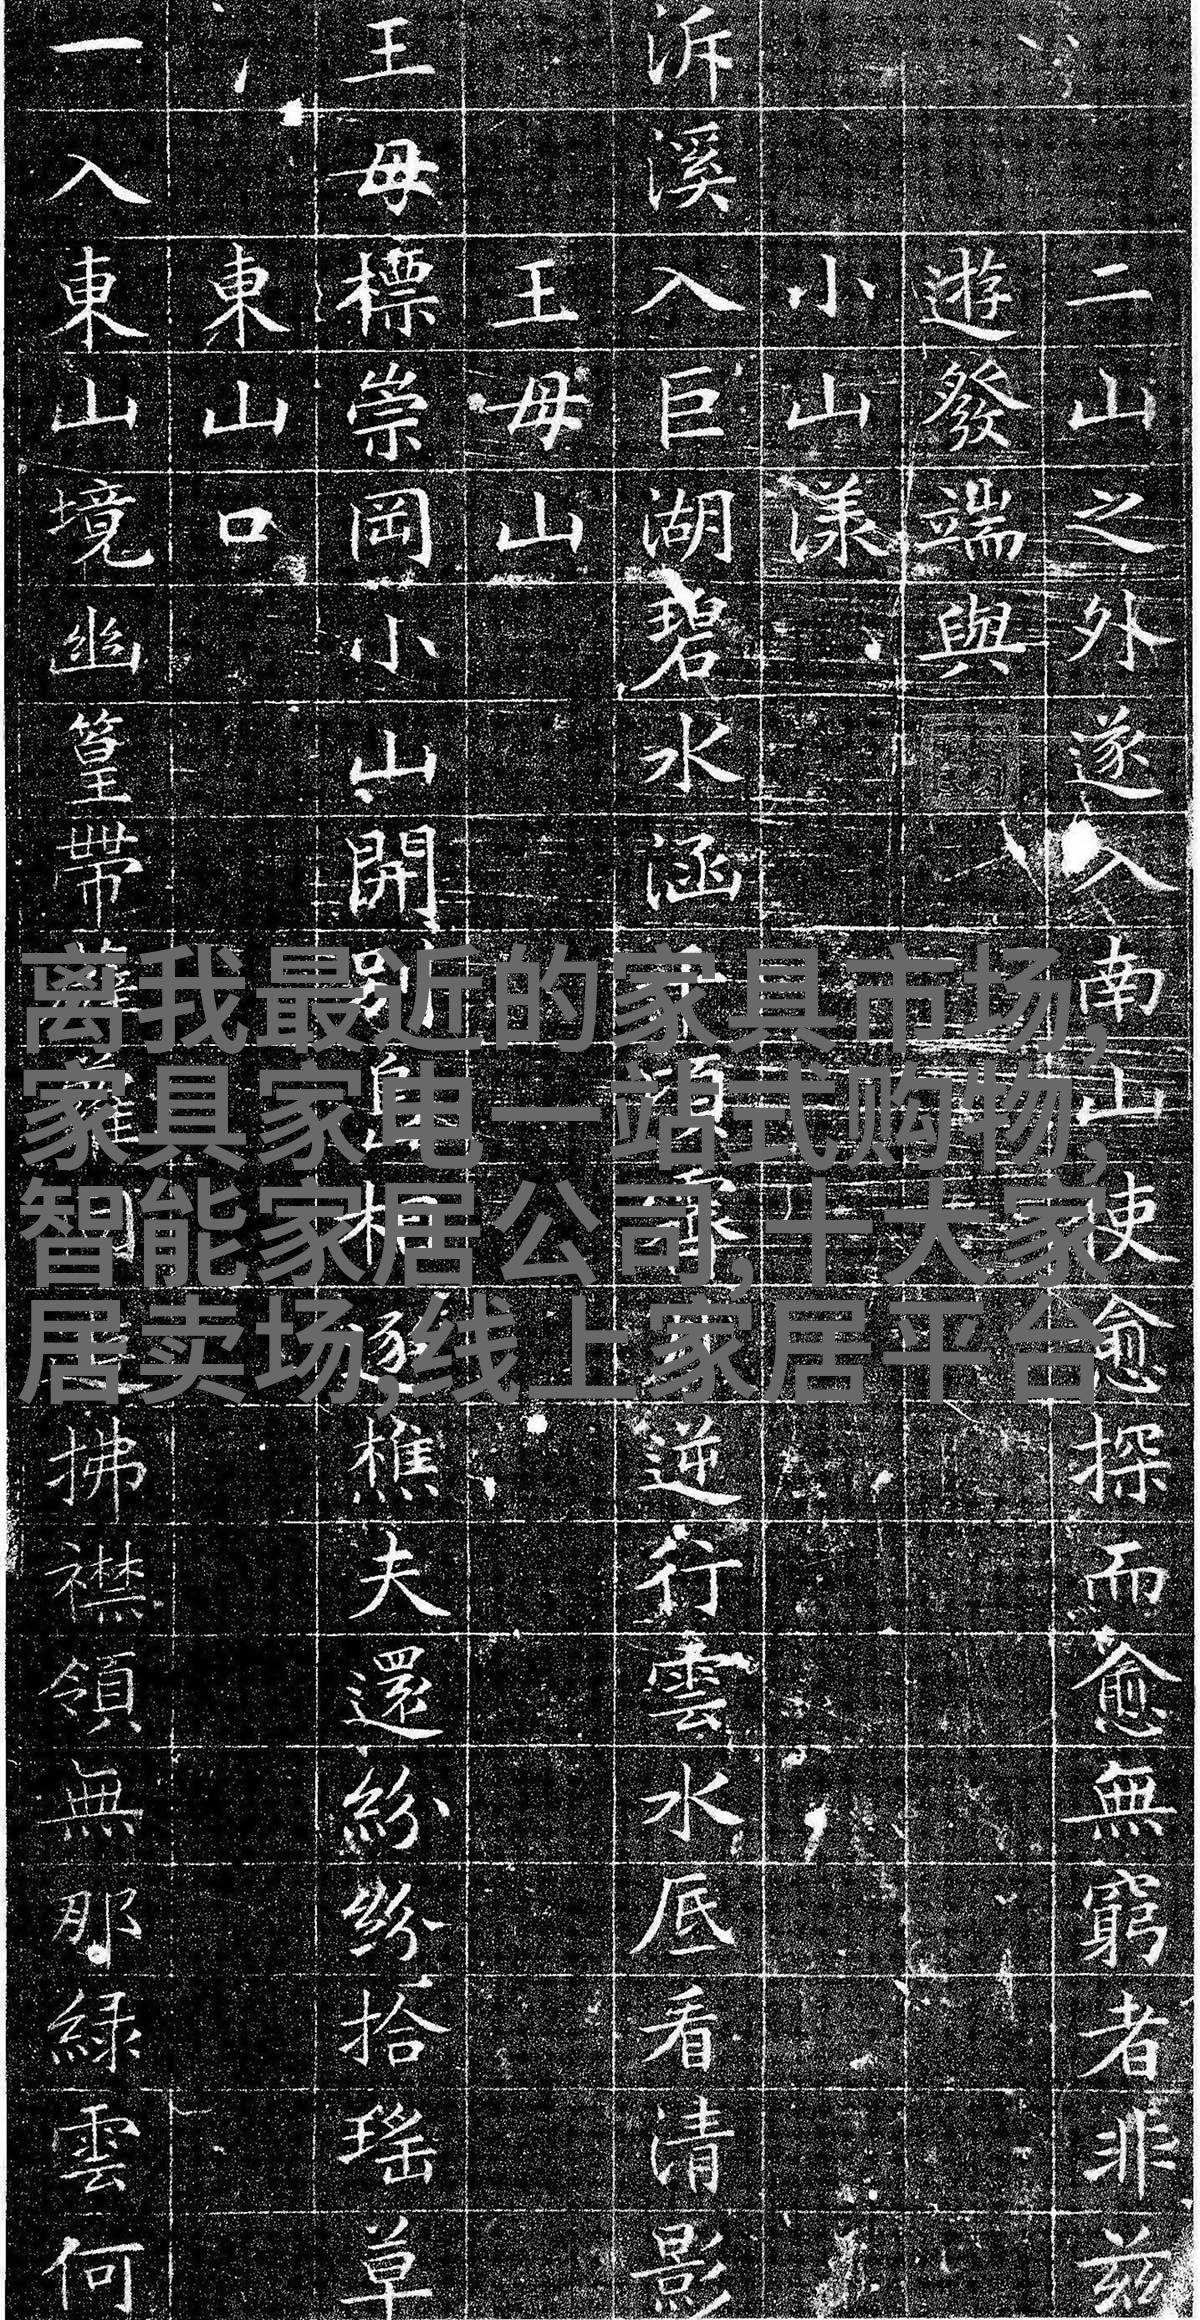 二山之外遂入南山使愈探而愈無窮者非茲
遊發端與
小山漾
泝溪入巨湖碧水涵頃逆行雲水底看清影
王母山
王母標崇岡小山開別相逐樵夫還紛紛拾瑤草
東山口
一入東山境幽篁帶拂襟領無那緑雲何
离我最近的家具市场,
家具家电一站式购物,
智能家居公司,十大家
居卖场,线上家居平台